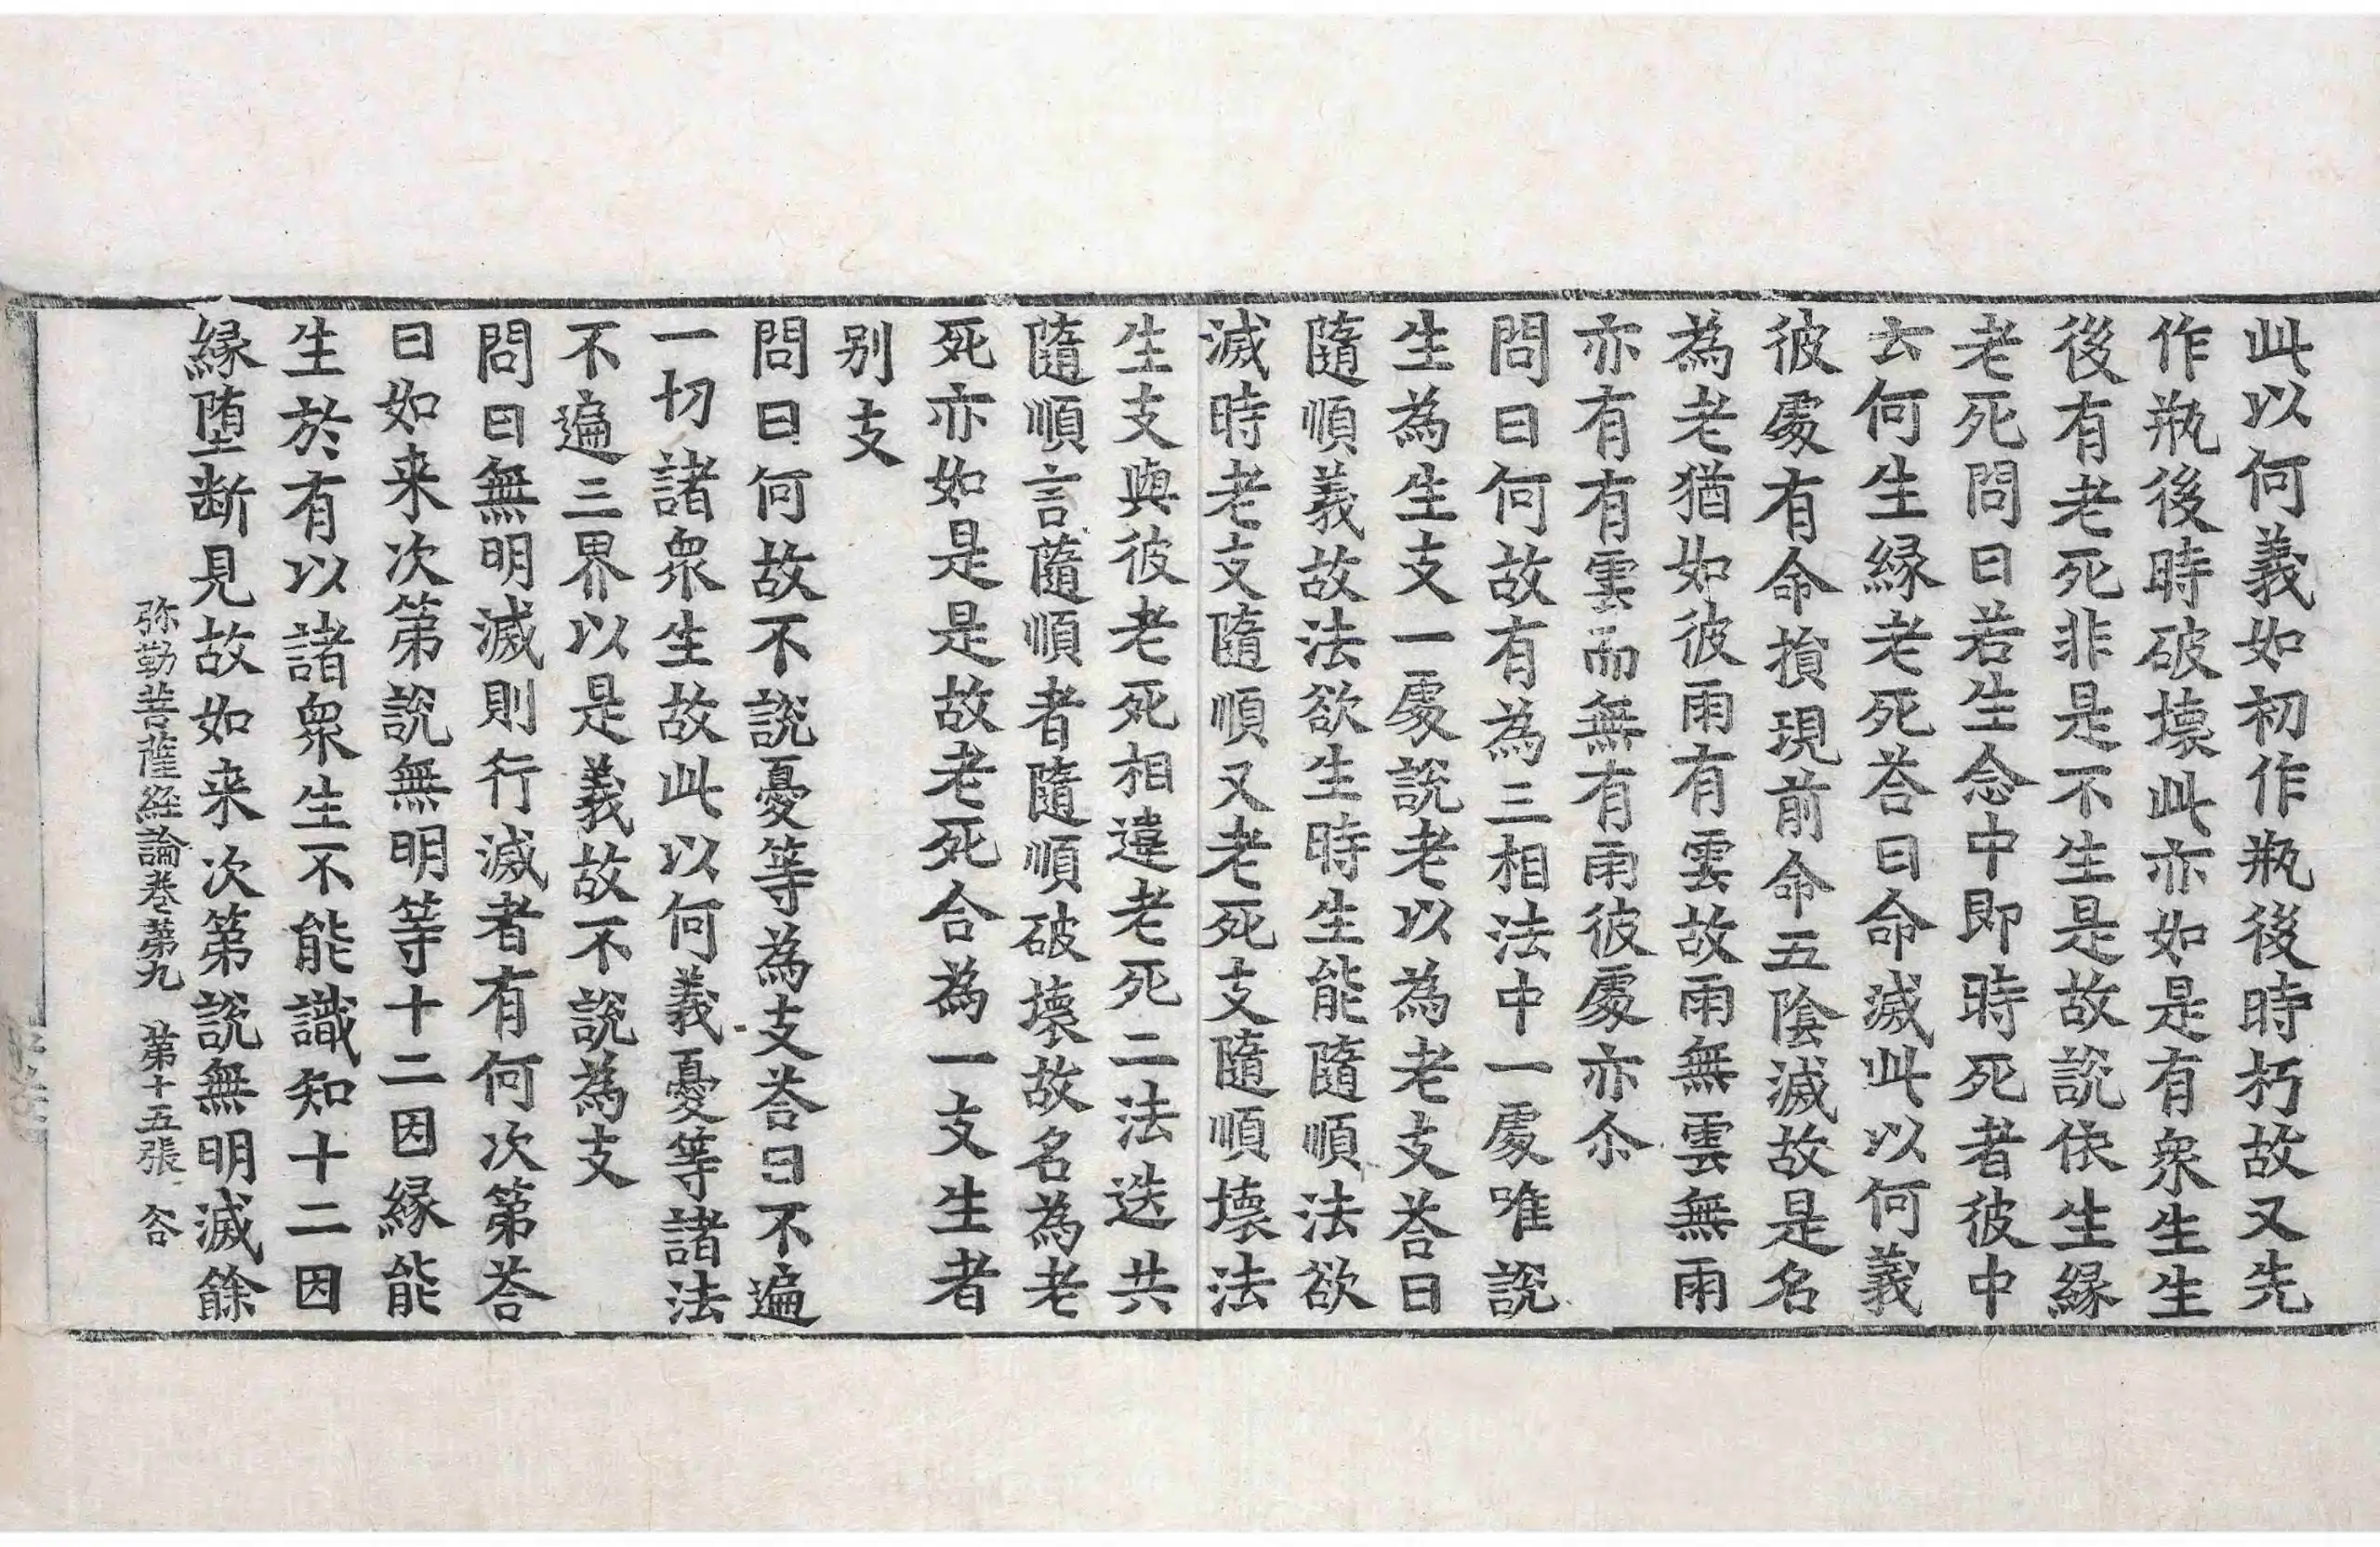 此以何義如初作瓶後時朽故又先
作瓶後時破壞此亦如是有衆生生
後有老死非是不生是故說依生緣
老死問曰若生念中即時死者彼中
云何生緣老死荅曰命滅此以何義
彼處有命損現前命五陰滅故是名
為老猶如彼雨有雲故雨無雲無雨
亦有有雲而無有雨彼處亦尒
問曰何故有為三相法中一處唯說
生為生支一處說老以為老支荅曰
隨順義故法欲生時生能隨順法欲
滅時老支隨順又老死支隨順壞法
生支與彼老死相違老死二法迭共
隨順言隨順者隨順破壞故名為老
死亦如是是故老死合為一支生者
別支
問曰何故不說憂等為支荅曰不遍
一切諸衆生故此以何義憂等諸法
不遍三界以是義故不說為支
問曰無明滅則行滅者有何次第荅
曰如来次第說無明等十二因緣能
生於有以諸衆生不能識知十二因
緣墮断見故如来次第說無明滅餘
弥勒菩薩経論卷第九 第十五張 谷